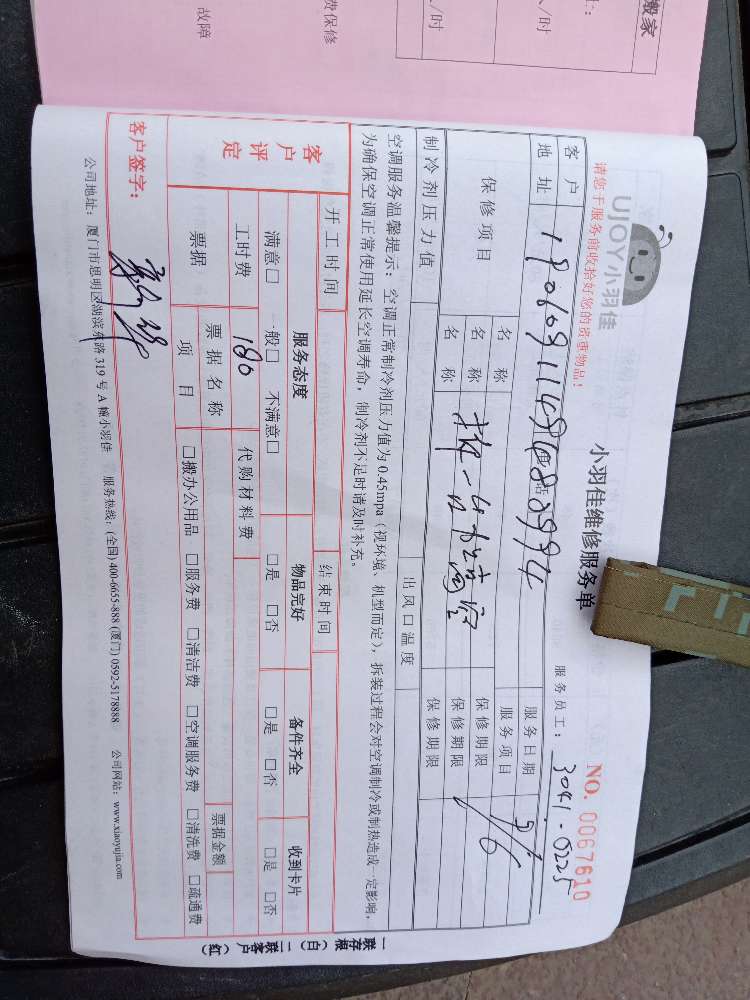 搬家
人/时
费保修
故障
UJOY小羽佳
请您于服务前收拾好您的贵重物品!
小羽佳维修服务单
NO. 0067610
服务员工: 3041·0225
客户
地址
服务日期
保修项目
名称
服务项目
名称
保修期限
名称
保修期限
保修期限
制冷剂压力值
出风口温度
空调服务温馨提示:空调正常制冷剂压力值为0.45mpa(视环境、机型而定),拆装过程会对空调制冷或制热造成一定影响,
为确保空调正常使用延长空调寿命,制冷剂不足时请及时补充。
开工时间
结束时间
客户评定
服务态度
物品完好
备件齐全
收到卡片
满意□ 一般□ 不满意□
□是 □否
□是 □否
□是 □否
工时费
180
代购材料费
票据
票据名称
票据金额
项目
□搬办公用品 □服务费 □清洁费 □空调服务费 □清洗费 □疏通费
客户签字:
公司地址: 厦门市思明区湖滨东路 319 号 A 幢小羽佳 服务热线: (全国) 400-6655-888 (厦门) 0592-5178888 公司网站: www.xiaoyujia.com
一联存根(白) 二联客户(红)